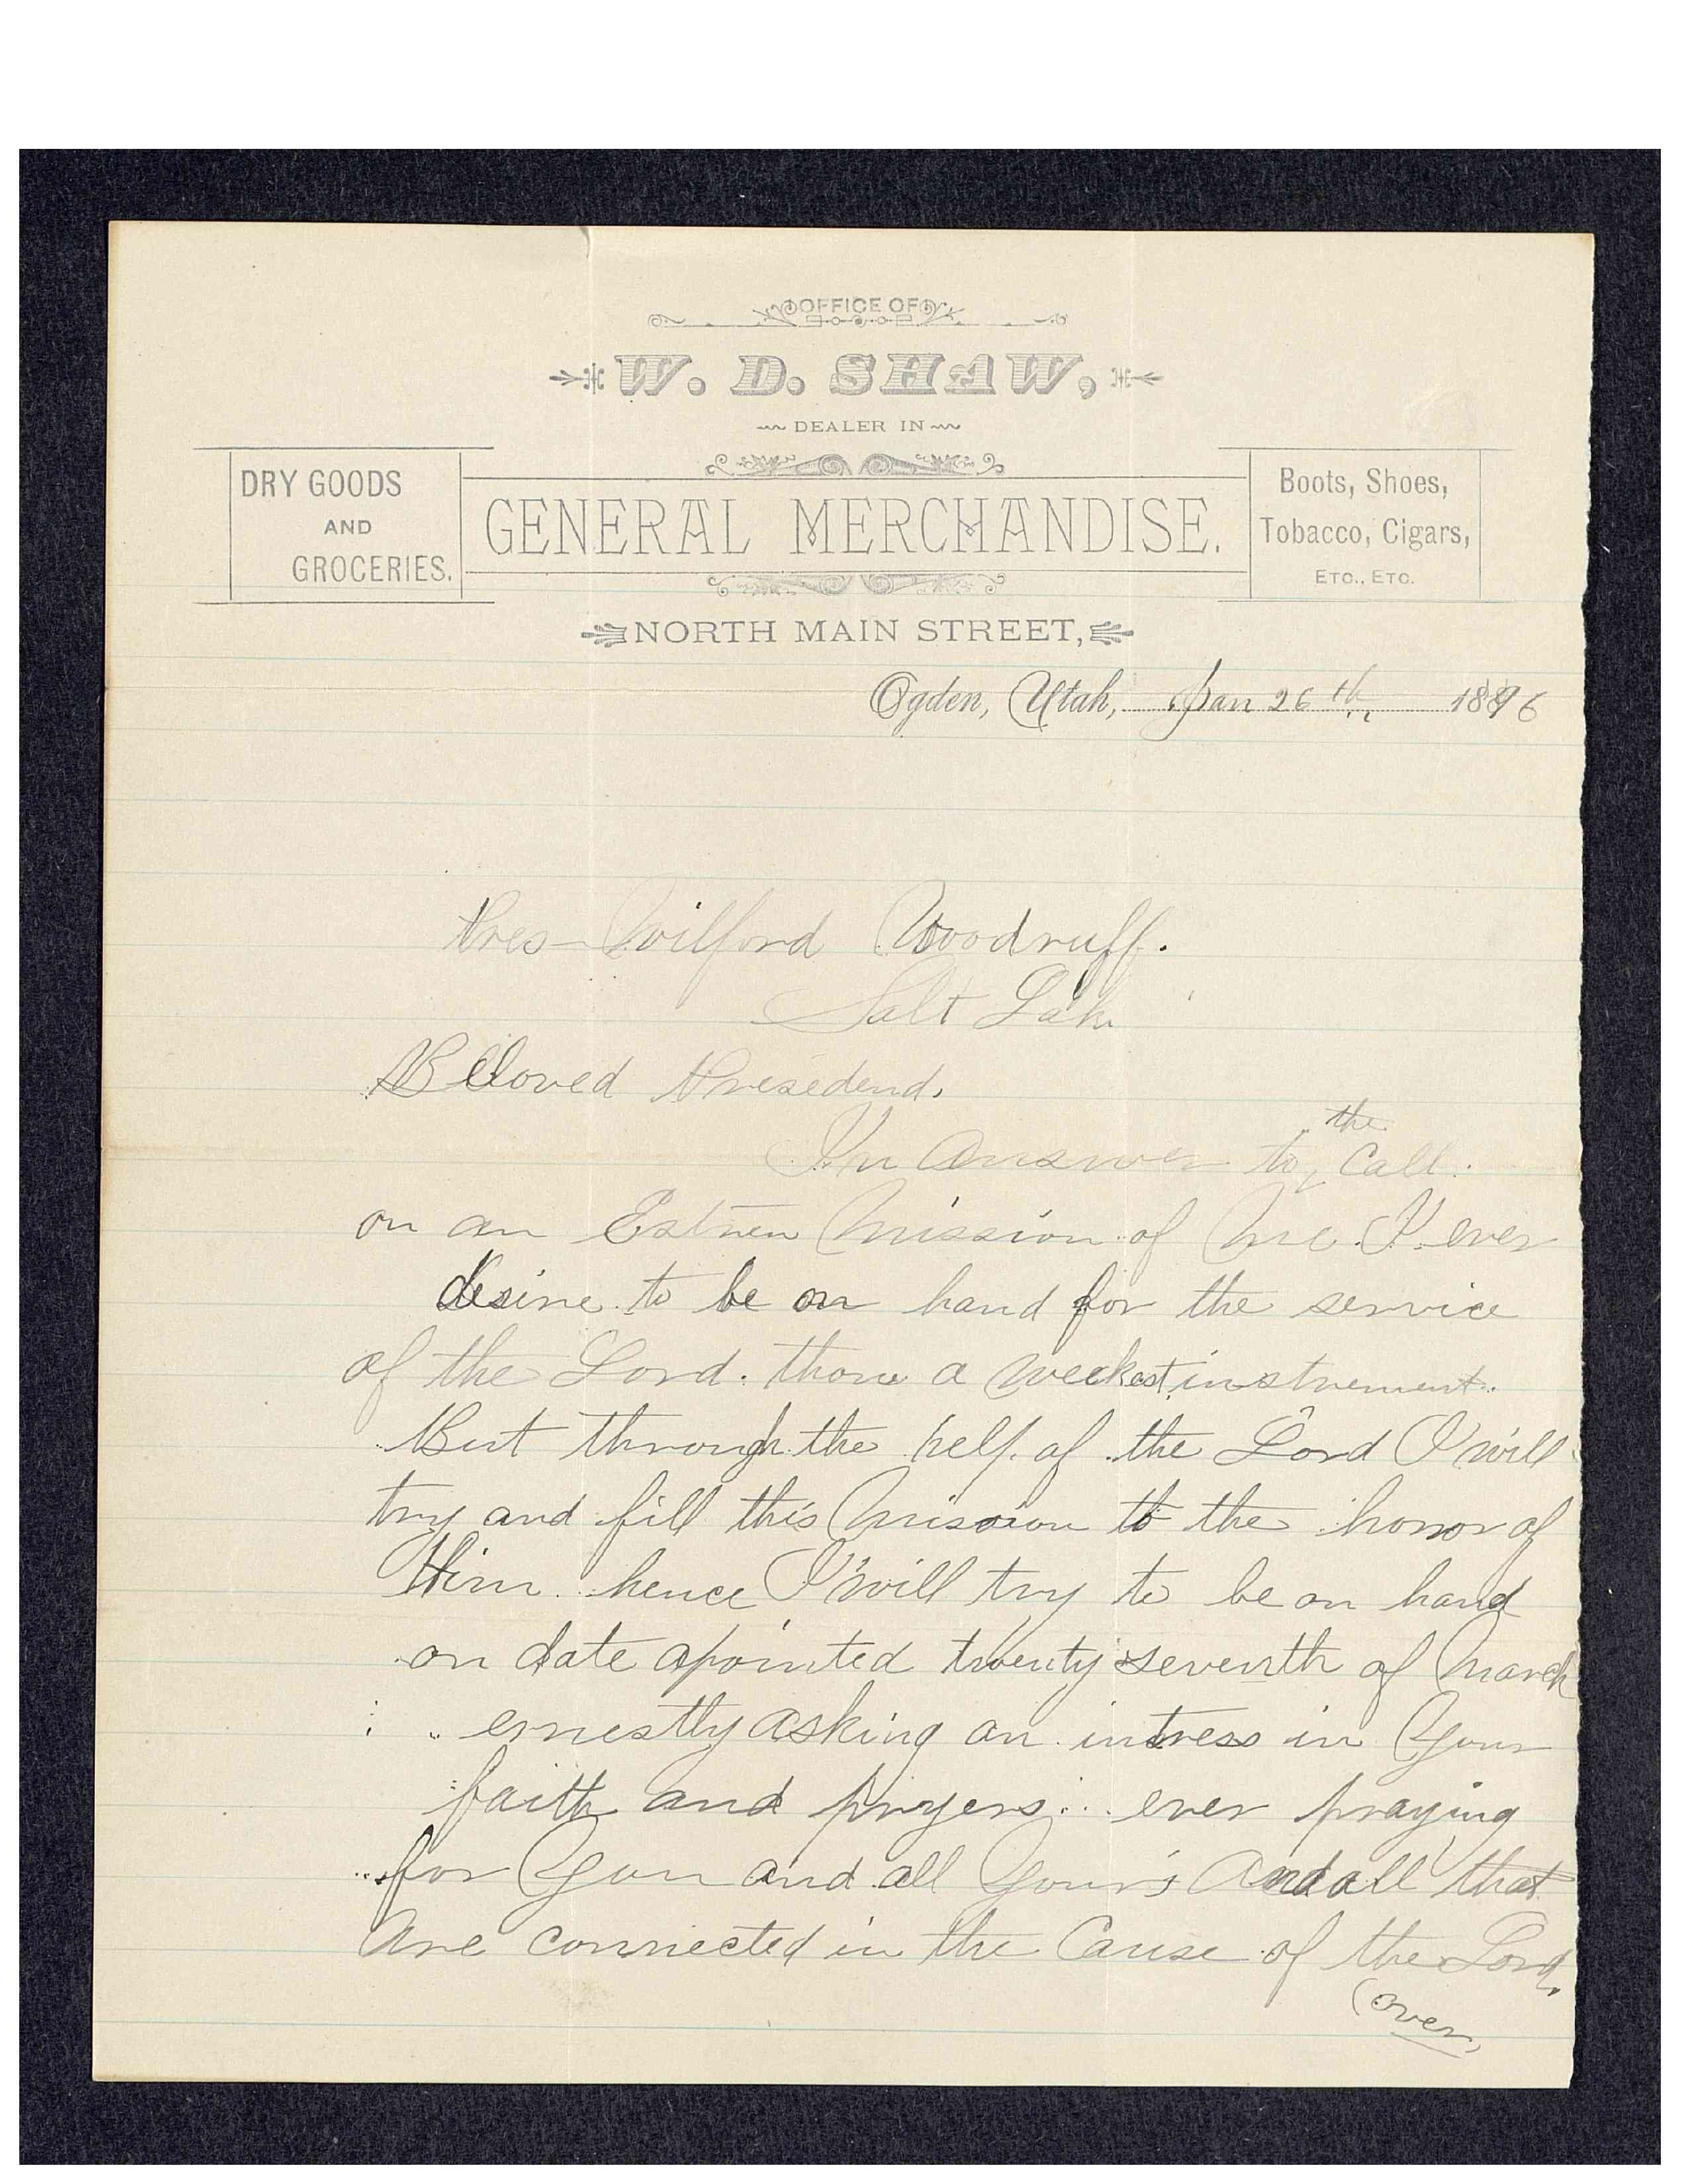 OFFICE OF
W. D. SHAW,
DEALER IN
DRY GOODS
AND
GROCERIES.
GENERAL MERCHANDISE.
Boots, Shoes,
Tobacco, Cigars,
ETC., ETC.
NORTH MAIN STREET,
Ogden, Utah, Jan 26th 1896
Pres Wilford Woodruff.
Salt Lake
Beloved Presedend.
In Answer to the Call.
on an Estren Mission of Me. I ever
desire to be on hand for the service
of the Lord. thow a weekest instrement.
But through the help of the Lord I will
try and fill this Mission to the honor of
Him. hence I will try to be on hand
on date apointed twenty seventh of March
ernestly asking an intress in Your
faith and pryers. ever praying
for You and all Your's And all that
Are connected in the Cause of the Lord.
(over)